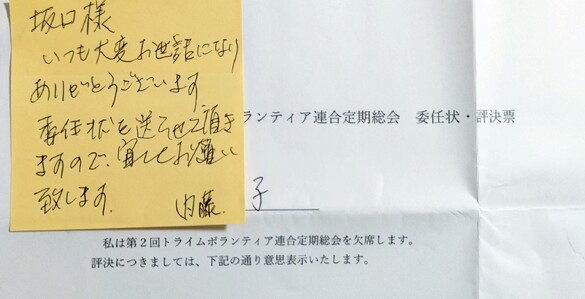 坂口様
いつも大変お世話になり
ありがとうございます
委任状を送らせて頂き
ますので、宜しくお願い
致します。
内藤
ランティア連合定期総会 委任状・評決票
子
私は第2回トライムボランティア連合定期総会を欠席します。
評決につきましては、下記の通り意思表示いたします。